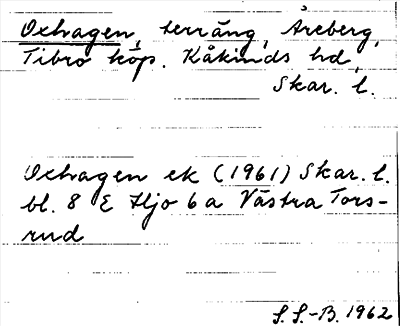 Oxhagen, terräng, Åreberg,
Tibro köp. Kåkinds hd,
Skar. l.
Oxhagen ek (1961) Skar. l.
bl. 8 E Hjo 6a Västra Tors-
rud
S.S.-B. 1962